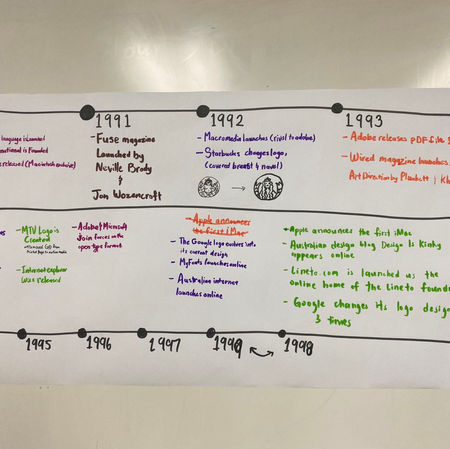 1991
1992
1993
language is launched
is founded
released (Macintosh
- Fuse magazine
Launched by
Neville Brody
&
Jon Wozencroft
- Macromedia launches (rival to adobe)
- Starbucks changes logo,
(covered breast & navel)
- Adobe releases PDF file
- Wired magazine launches
Art Direction by Plunkett
- MTV Logo is
Created
- Internet explorer
was released
- Adobe & Microsoft
Join forces on the
open type format
- Apple announces
the first iMac
- The Google logo evolves into
its current design
- MyFonts launches online
- Australian internet
launches online
- Apple announces the first iMac
- Australian design blog Design Is Kinky
appears online
- Lineto.com is launched as the
online home of the Lineto
- Google changes its logo design
3 times
1995
1996
1997
1999
1998